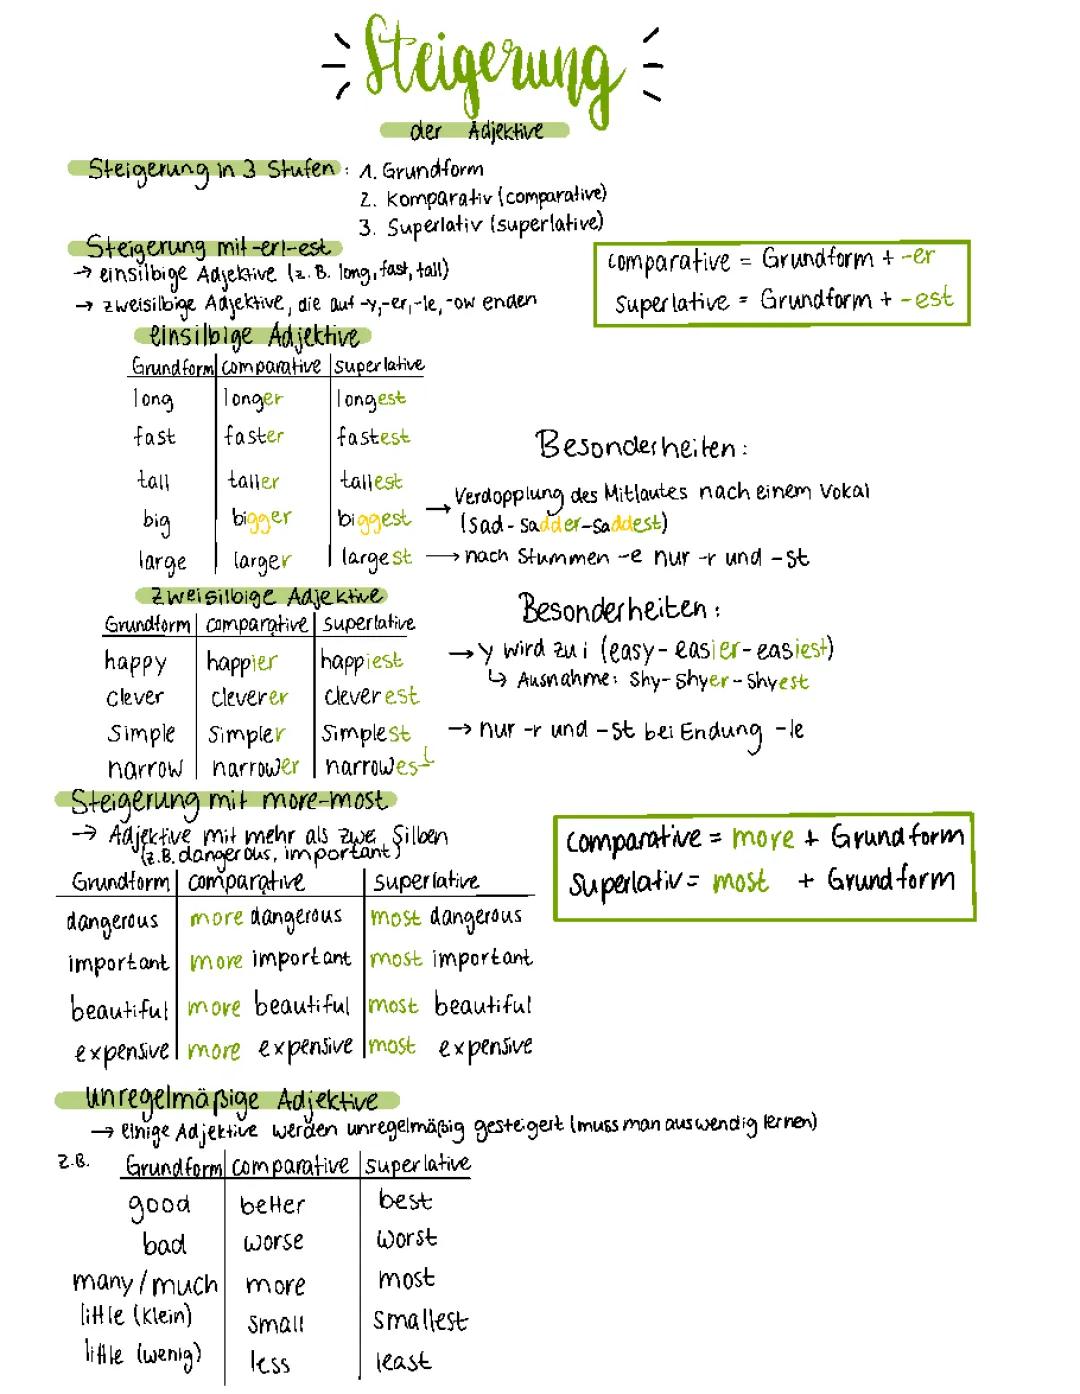 Steigerung
der Adjektive
Steigerung in 3 Stufen: 1. Grundform
2. Komparativ (comparative)
3. Superlativ (superlative)
Steigerung mit -er/-est
→ einsilbige Adjektive (z.B. long, fast, tall)
→ zweisilbige Adjektive, die auf -y,-er,-le,-ow enden
comparative = Grundform + -er
superlative = Grundform + -est
einsilbige Adjektive
Grundform comparative superlative
long longer longest
fast faster fastest
tall taller tallest
big bigger biggest
large larger largest
Besonderheiten:
→ Verdopplung des Mitlautes nach einem Vokal
(sad - sadder - saddest)
→ nach stummen -e nur -r und -st
zweisilbige Adjektive
Grundform comparative superlative
happy happier happiest
clever cleverer cleverest
simple simpler simplest
narrow narrower narrowest
Besonderheiten:
→ y wird zu i (easy - easier - easiest)
↳ Ausnahme: shy - shyer - shyest
→ nur -r und -st bei Endung -le
Steigerung mit more-most
→ Adjektive mit mehr als zwe Silben
(z.B. dangerous, important)
comparative = more + Grundform
Superlativ = most + Grundform
Grundform comparative superlative
dangerous more dangerous most dangerous
important more important most important
beautiful more beautiful most beautiful
expensive more expensive most expensive
unregelmäßige Adjektive
→ einige Adjektive werden unregelmäßig gesteigert (muss man auswendig lernen)
z.B. Grundform comparative superlative
good better best
bad worse worst
many/much more most
little (klein) small smallest
little (wenig) less least